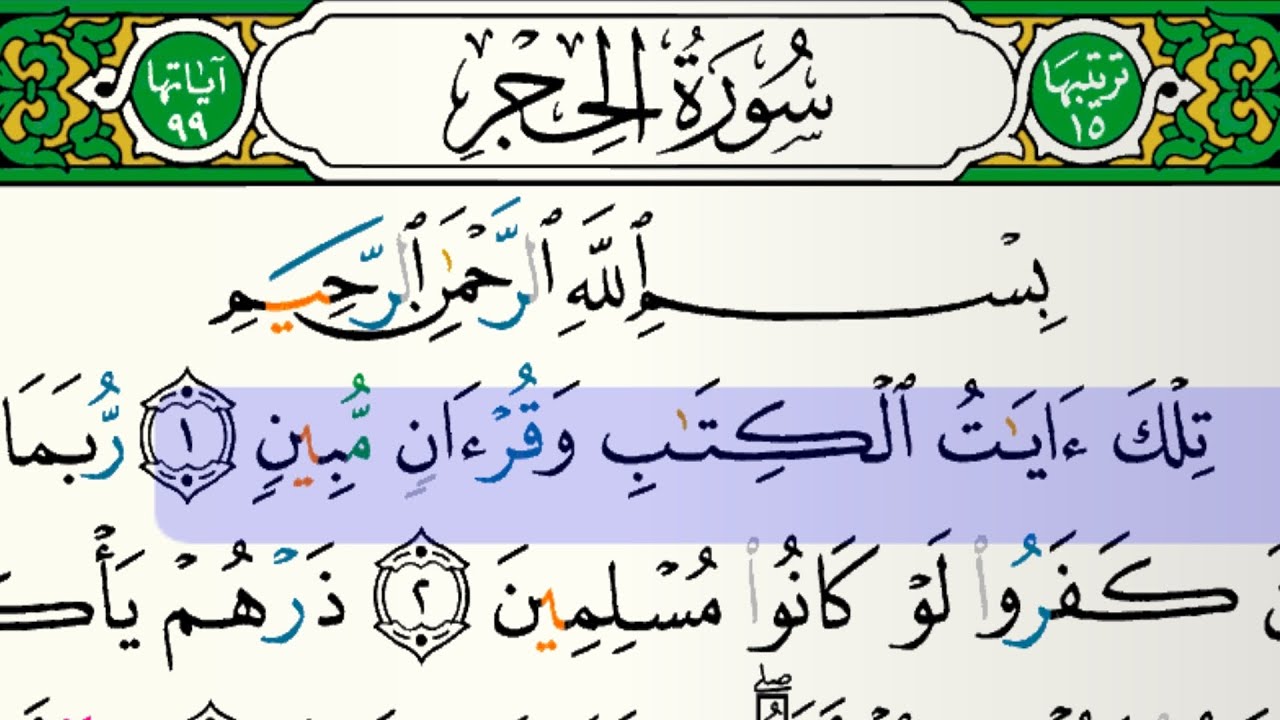 ترتيبها ١٥ سُورَةُ الحِجْرِ آياتها ٩٩
بِسْمِ ٱللَّهِ ٱلرَّحْمَٰنِ ٱلرَّحِيمِ
تِلْكَ ءَايَٰتُ ٱلْكِتَٰبِ وَقُرْءَانٍ مُّبِينٍ ١ رُّبَمَا
كَفَرُوا۟ لَوْ كَانُوا۟ مُسْلِمِينَ ٢ ذَرْهُمْ